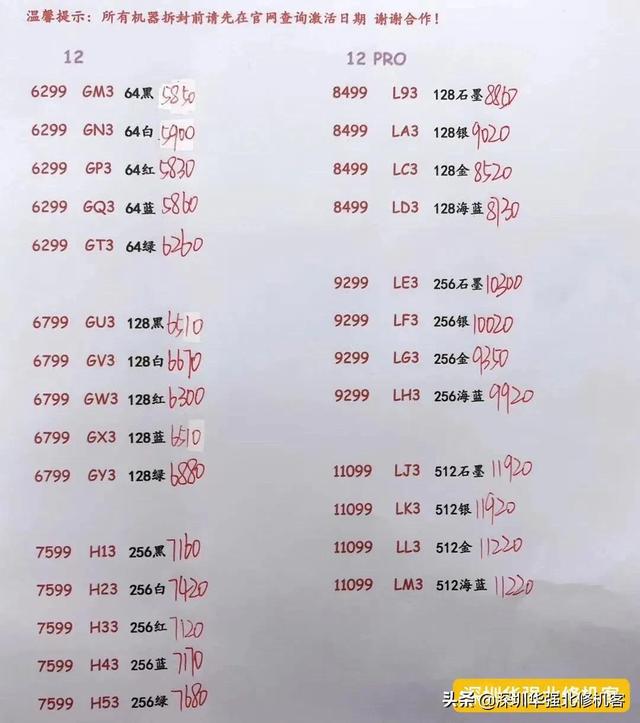 温馨提示：所有机器拆封前请先在官网查询激活日期 谢谢合作！
12
6299 GM3 64黑 5850
6299 GN3 64白 5900
6299 GP3 64红 5830
6299 GQ3 64蓝 5860
6299 GT3 64绿 6260
6799 GU3 128黑 6510
6799 GV3 128白 6670
6799 GW3 128红 6300
6799 GX3 128蓝 6510
6799 GY3 128绿 6880
7599 H13 256黑 7160
7599 H23 256白 7420
7599 H33 256红 7120
7599 H43 256蓝 7170
7599 H53 256绿 7680
12 PRO
8499 L93 128石墨 8850
8499 LA3 128银 9020
8499 LC3 128金 8520
8499 LD3 128海蓝 8130
9299 LE3 256石墨 10300
9299 LF3 256银 10020
9299 LG3 256金 9350
9299 LH3 256海蓝 9920
11099 LJ3 512石墨 11920
11099 LK3 512银 11920
11099 LL3 512金 11220
11099 LM3 512海蓝 11220
深圳华强北修机客
头条 @深圳华强北修机客